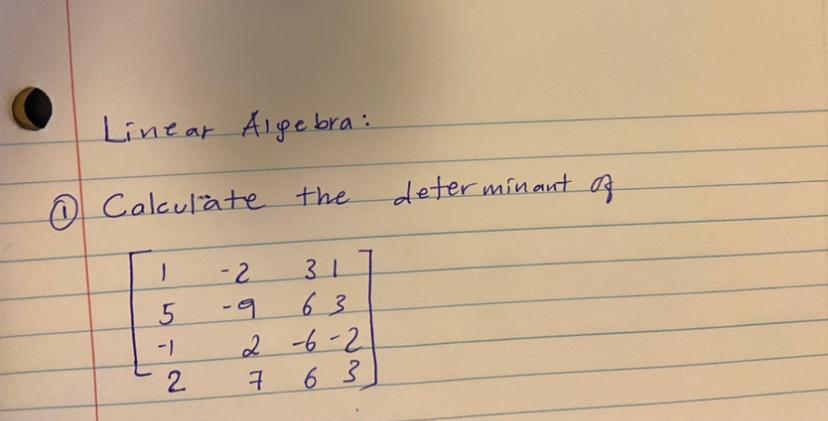 Linear Algebra:
① Calculate the determinant of
1 -2 3 1
5 -9 6 3
-1 2 -6 -2
2 7 6 3